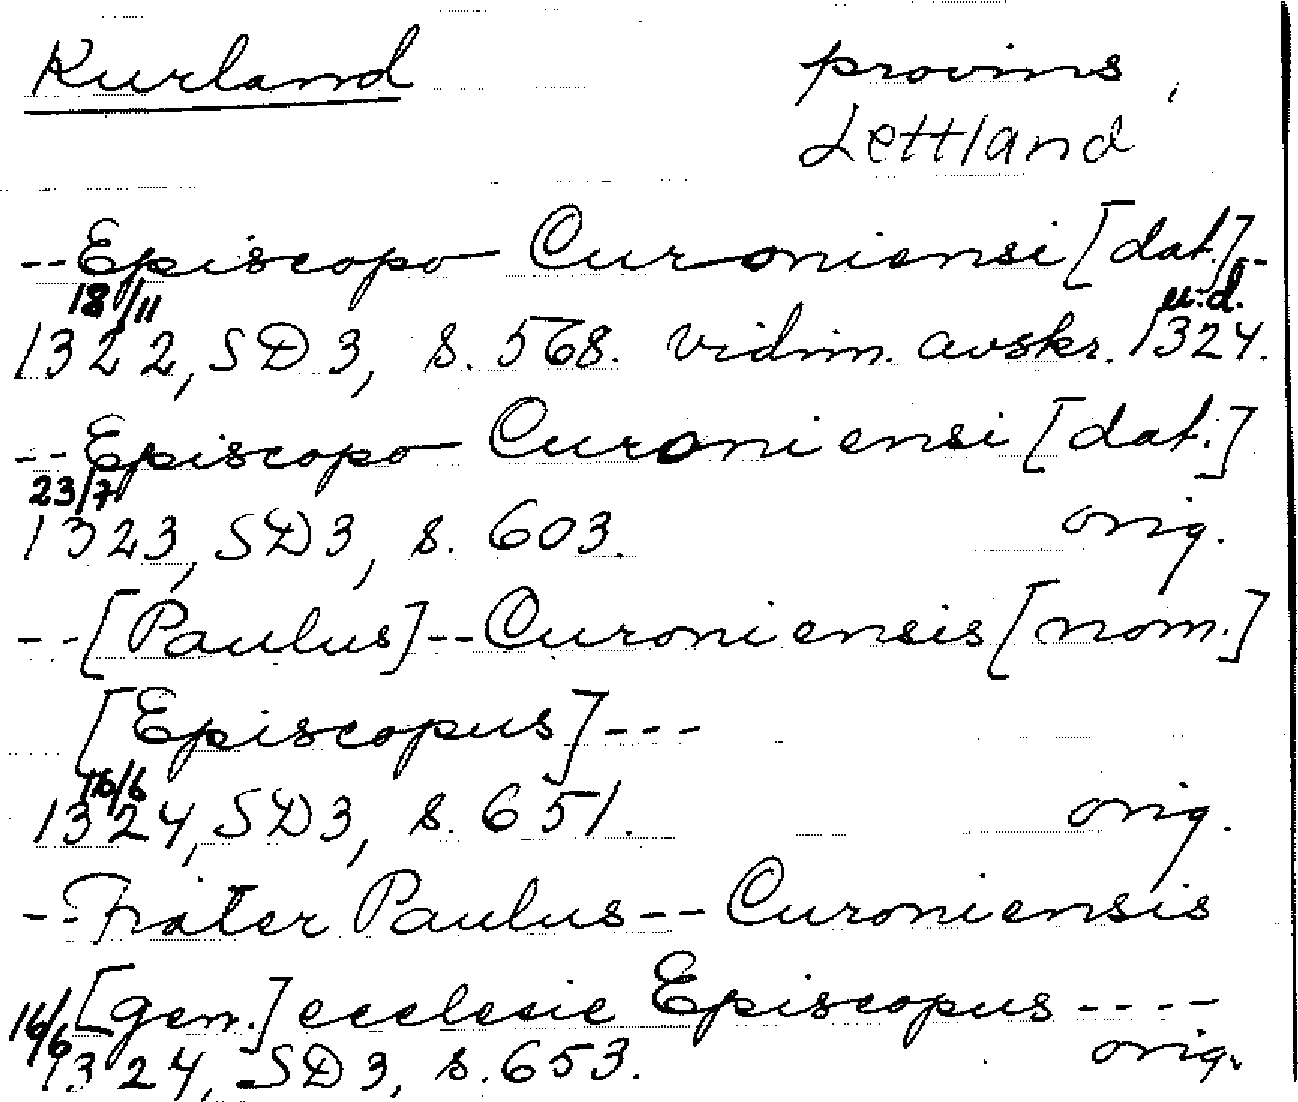 Kurland provins,
Lettland
--Episcopo Curoniensi [dat.]--
18/11 u.d.
1322, SD3, s. 568. vidim. avskr. 1324.
--Episcopo Curoniensi [dat.]
23/7
1323, SD3, s. 603. orig.
--[Paulus]--Curoniensis [nom.]
[Episcopus]---
16/6
1324, SD3, s. 651. orig.
--Frater Paulus--Curoniensis
[gen.] ecclesie Episcopus----
16/6
1324, SD3, s. 653. orig.